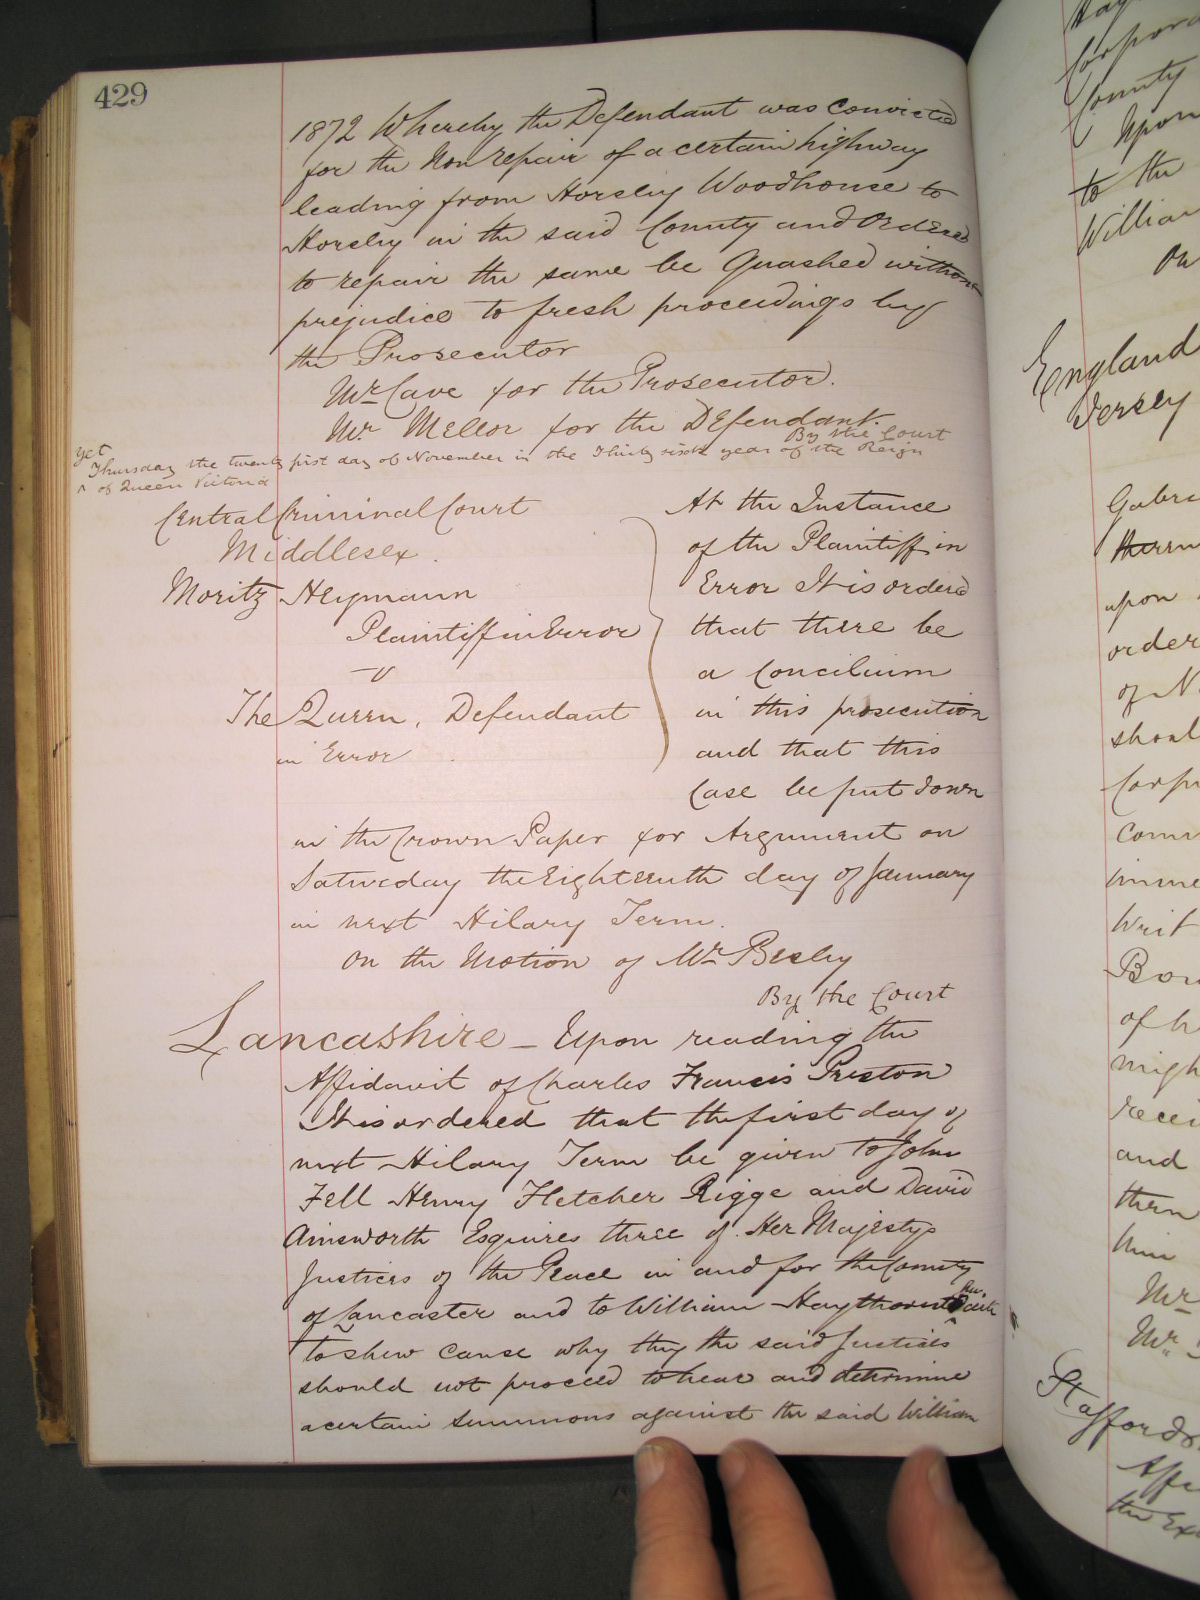 429
1872 Whereby the Defendant was convicted
for the Non repair of a certain highway
leading from Horsley Woodhouse to
Horsley in the said County and Ordered
to repair the same be Quashed without
prejudice to fresh proceedings by
the Prosecutor
Mr Cave for the Prosecutor.
Mr Mellor for the Defendant.
By the Court
Yet
Thursday the twenty first day of November in the Thirty sixth year of the Reign
^ of Queen Victoria
Central Criminal Court
Middlesex.
Moritz Heymann
Plaintiff in Error
v
The Queen, Defendant
in Error
At the Instance
of the Plaintiff in
Error It is ordered
that there be
a Concilium
in this prosecution
and that this
Case be put down
in the Crown Paper for Argument on
Saturday the Eighteenth day of January
in next Hilary Term.
On the Motion of Mr Besley
By the Court
Lancashire – Upon reading the
Affidavit of Charles Francis Preston
It is ordered that the first day of
next Hilary Term be given to John
Fell Henry Fletcher Rigge and David
Ainsworth Esquires three of Her Majestys
Justices of the Peace in and for the County
of Lancaster and to William
to shew cause why they the said Justices
should not proceed to hear and determine
a certain summons against the said William
County
Upon
to the
William
On
England
Jersey
upon
order
of N
and
then
him
Mr
Mr
the Ex